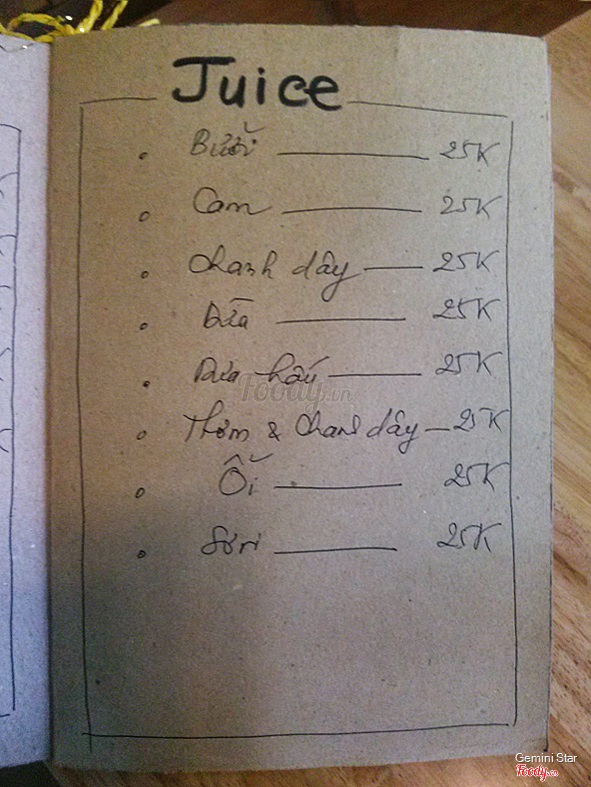 Juice
Bưởi 25K
Cam 25K
Chanh dây 25K
Dừa 25K
Dưa hấu 25K
Thơm & Chanh dây 25K
Ổi 25K
Sơri 25K
Foody.vn
Gemini Star
Foody.vn